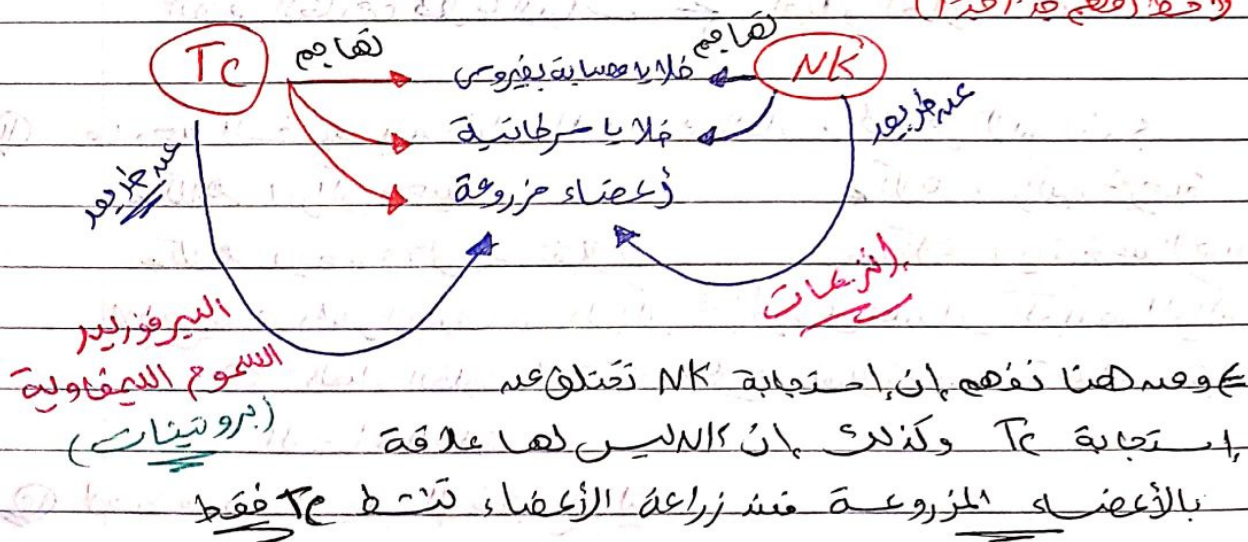 لاحظ (مهم جدًا جدًا)
Tc تهاجم خلايا مصابة بفيروس تهاجم NK
خلايا سرطانية
أعضاء مزروعة
عن طريق
عن طريق
إنزيمات
البيرفورين
السموم الليمفاوية
(بروتينات)
ومن هنا نفهم إن إستجابة NK تختلف عن
إستجابة Tc وكذلك إن الـ ليس لها علاقة
بالأعضاء المزروعة فعند زراعة الأعضاء تنشط Tc فقط